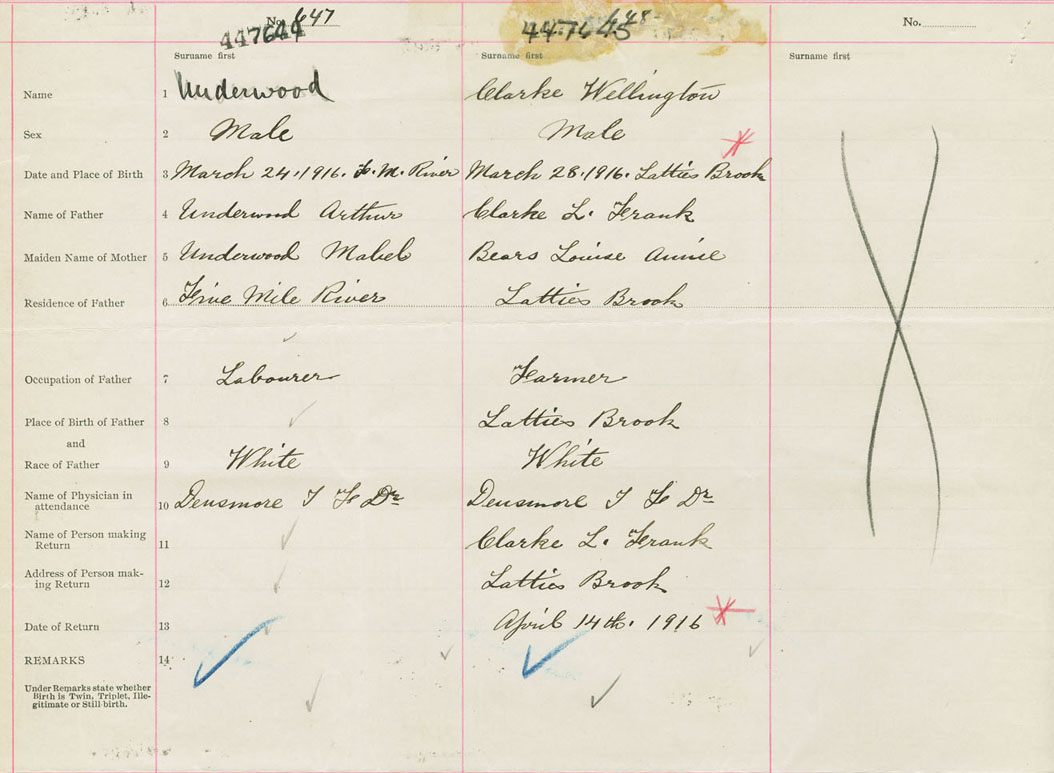 No. 647
447644
447645 648
No.
Surname first Surname first Surname first
Name 1 Underwood Clarke Wellington
Sex 2 Male Male
Date and Place of Birth 3 March 24, 1916. F. M. River March 28, 1916. Latties Brook
Name of Father 4 Underwood Arthur Clarke L. Frank
Maiden Name of Mother 5 Underwood Mabel Bears Louise Annie
Residence of Father 6 Five Mile River Latties Brook
Occupation of Father 7 Labourer Farmer
Place of Birth of Father 8 Latties Brook
and
Race of Father 9 White White
Name of Physician in
attendance 10 Densmore T F Dr Densmore T F Dr
Name of Person making
Return 11 Clarke L. Frank
Address of Person mak-
ing Return 12 Latties Brook
Date of Return 13 April 14th. 1916
REMARKS 14
Under Remarks state whether
Birth is Twin, Triplet, Ille-
gitimate or Still-birth.